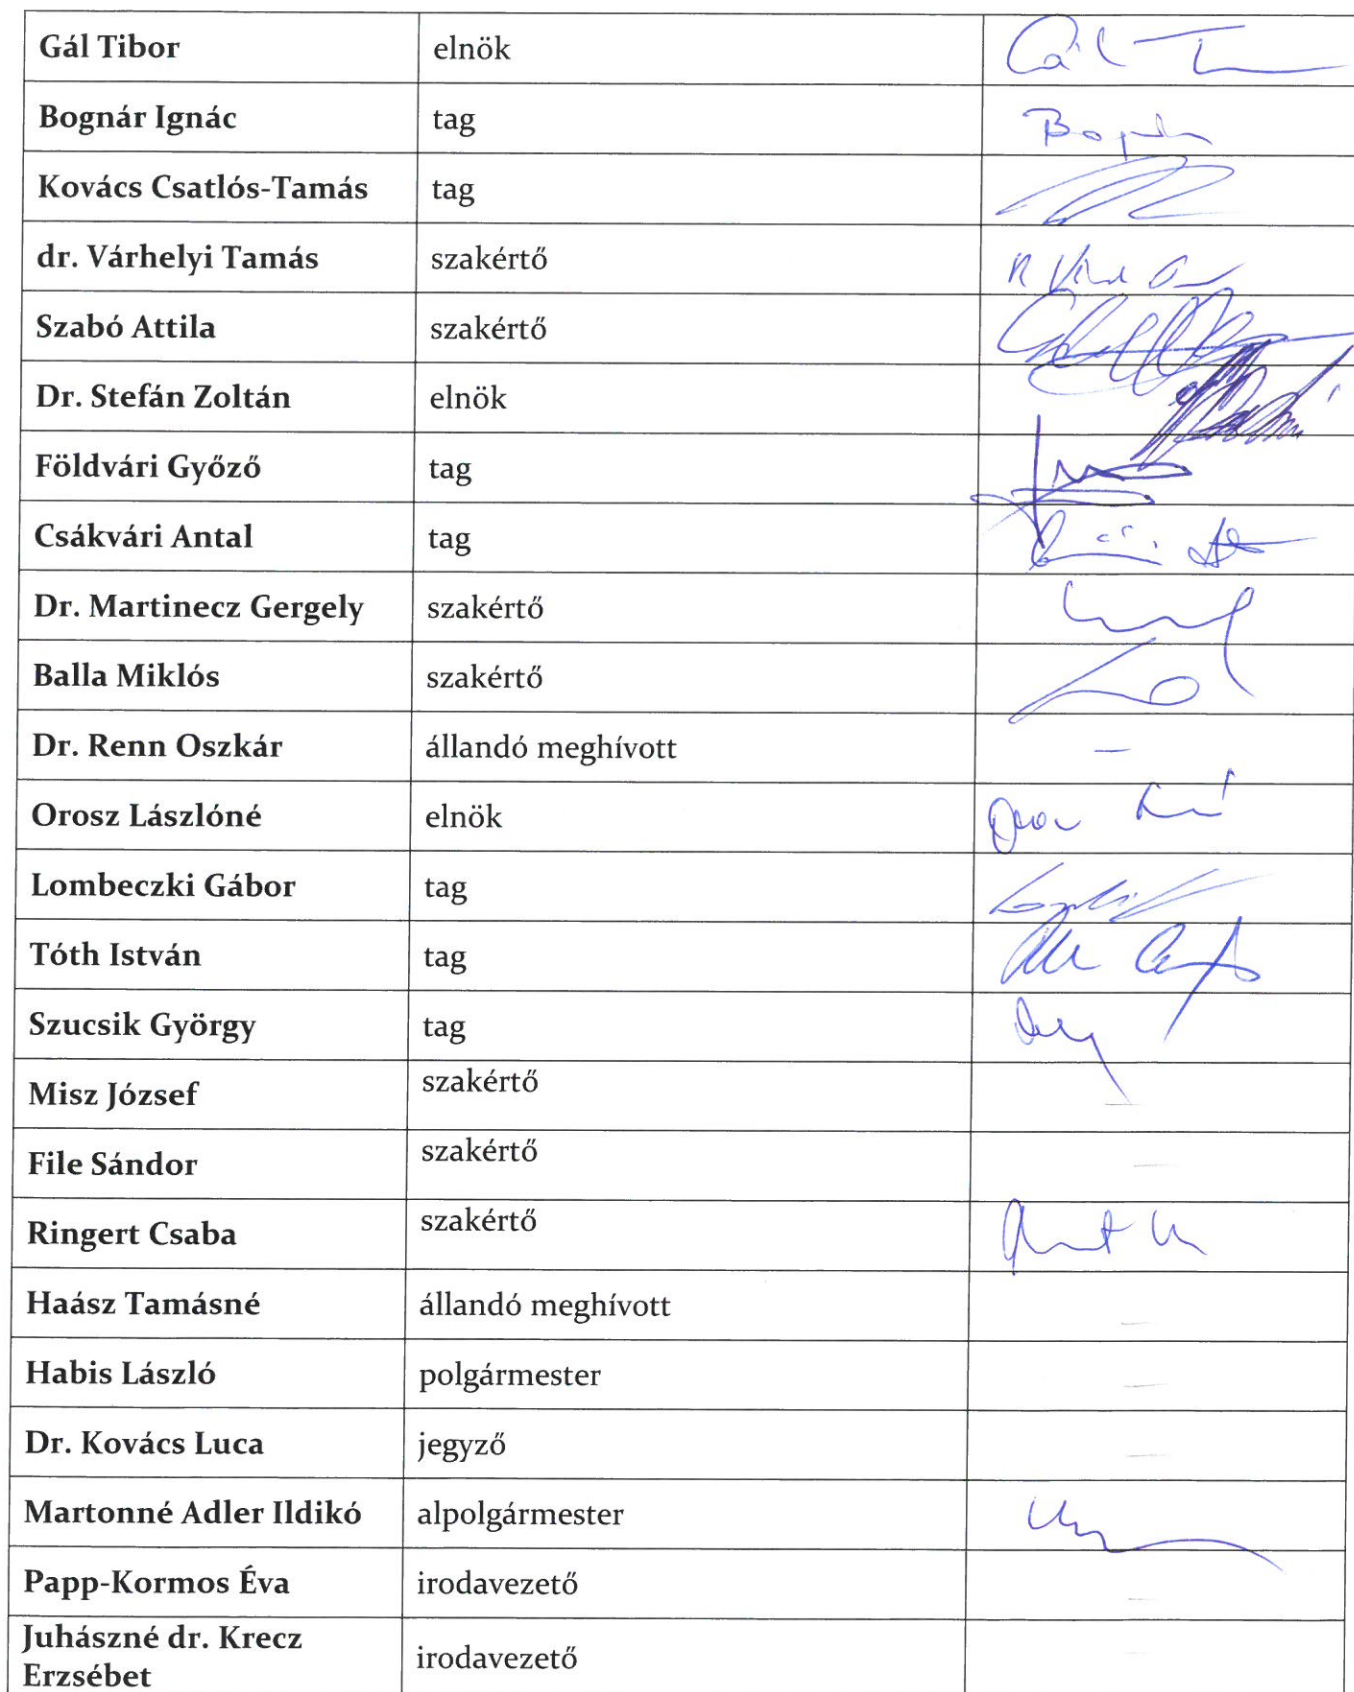 Gál Tibor elnök Gál T
Bognár Ignác tag
Kovács Csatlós-Tamás tag
dr. Várhelyi Tamás szakértő
Szabó Attila szakértő
Dr. Stefán Zoltán elnök
Földvári Győző tag
Csákvári Antal tag
Dr. Martinecz Gergely szakértő
Balla Miklós szakértő
Dr. Renn Oszkár állandó meghívott —
Orosz Lászlóné elnök
Lombeczki Gábor tag
Tóth István tag
Szucsik György tag
Misz József szakértő —
File Sándor szakértő —
Ringert Csaba szakértő
Haász Tamásné állandó meghívott —
Habis László polgármester —
Dr. Kovács Luca jegyző —
Martonné Adler Ildikó alpolgármester
Papp-Kormos Éva irodavezető —
Juhászné dr. Krecz
Erzsébet irodavezető —